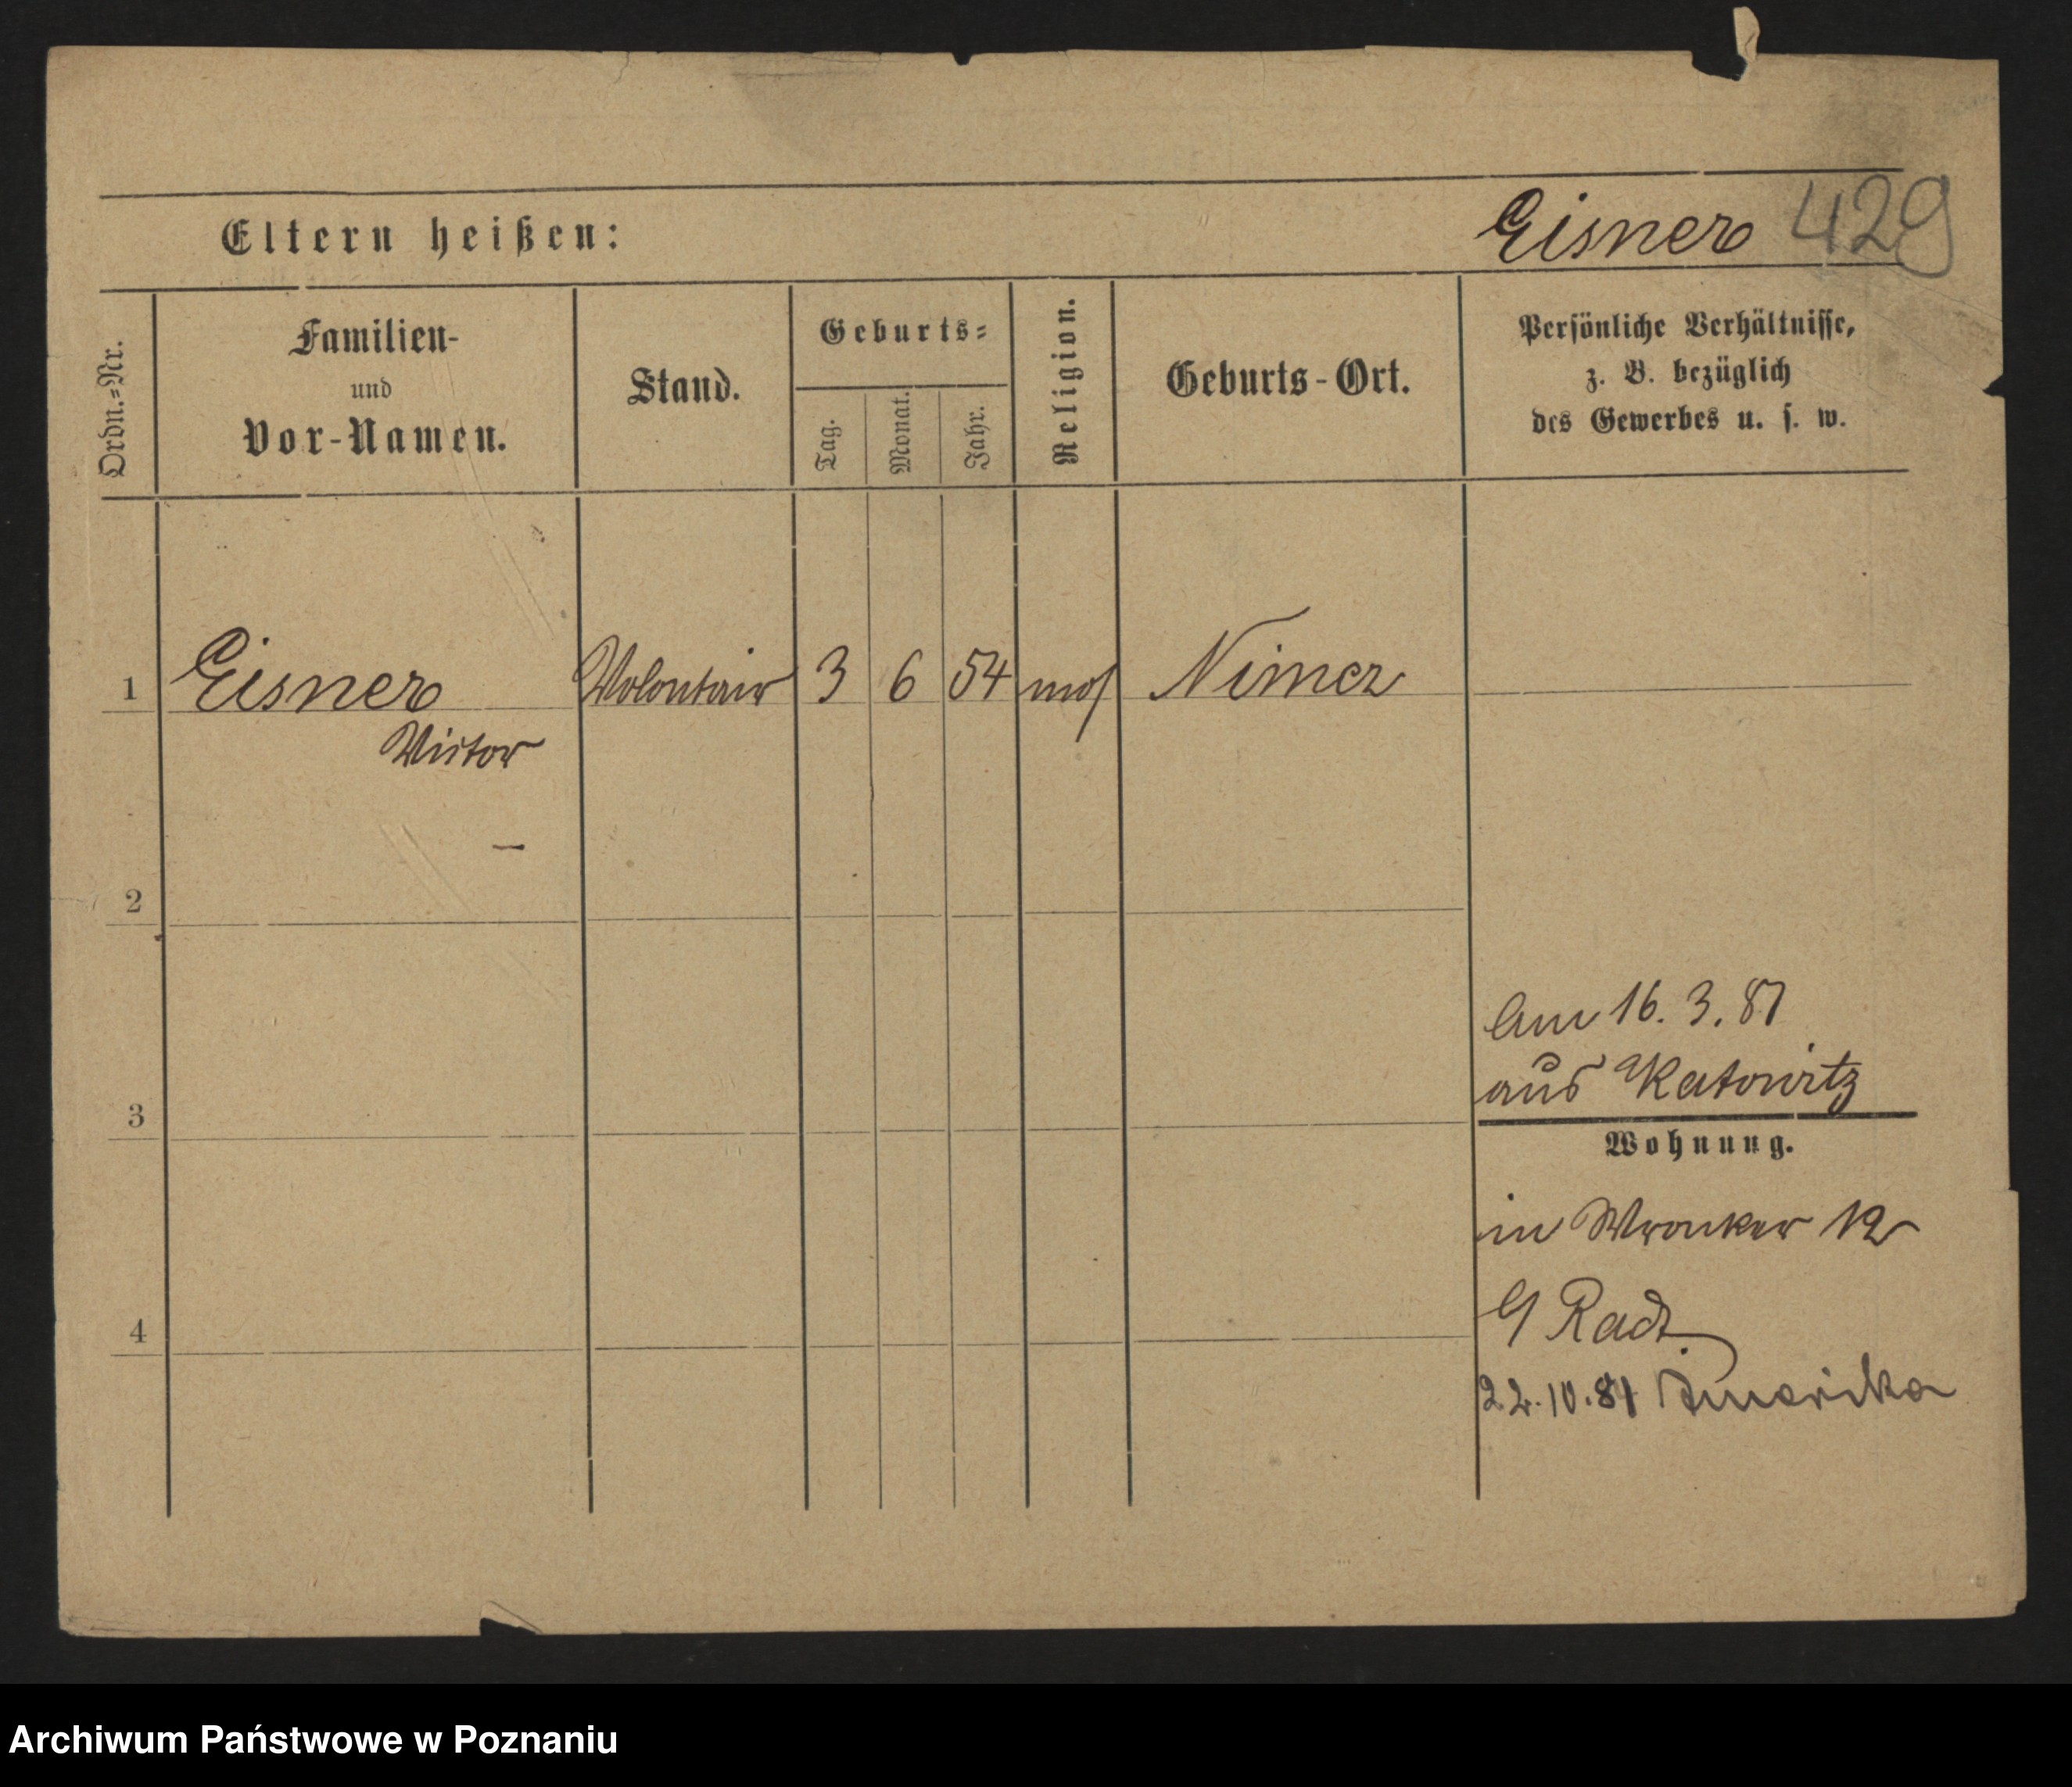 Eltern heißen:
Eisner 429
Ordn.=Nr.
Familien-
und
Vor-Namen.
Stand.
Geburts=
Tag.
Monat.
Jahr.
Religion.
Geburts-Ort.
Persönliche Verhältnisse,
z. B. bezüglich
des Gewerbes u. s. w.
1 Eisner Volontair 3 6 54 mos Nimcz
Victor
2
Am 16. 3. 81
aus Katowitz
3
Wohnung.
in Wronker 12
4
22.10.81 Amerika
Archiwum Państwowe w Poznaniu